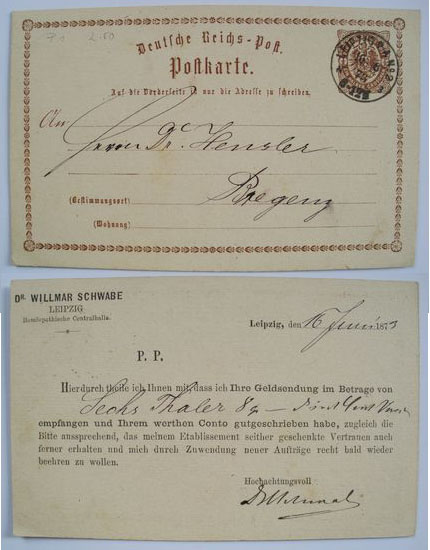 Deutsche Reichs-Post.
Postkarte.
Auf die Vorderseite ist nur die Adresse zu schreiben.
An
Herrn Dr Hensler
Bregenz
(Bestimmungsort)
(Wohnung)
LEIPZIG
DR. WILLMAR SCHWABE
LEIPZIG
Homöopathische Centralhalle.
Leipzig, den 16 Juni 1873
P. P.
Hierdurch theile ich Ihnen mit, dass ich Ihre Geldsendung im Betrage von
Sechs Thaler 8
empfangen und Ihrem werthen Conto gutgeschrieben habe, zugleich die
Bitte aussprechend, das meinem Etablissement seither geschenkte Vertrauen auch
ferner erhalten und mich durch Zuwendung neuer Aufträge recht bald wieder
beehren zu wollen.
Hochachtungsvoll